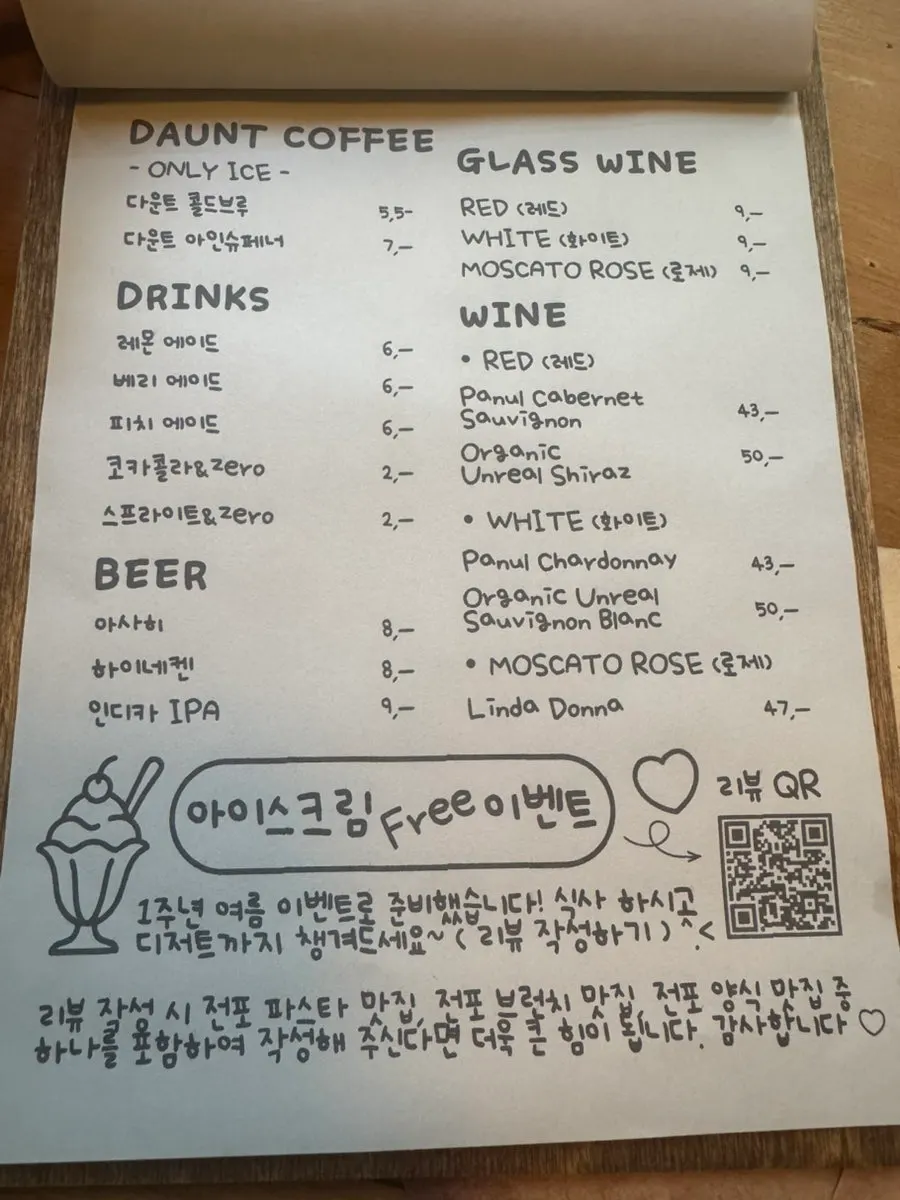 DAUNT COFFEE
- ONLY ICE -
다운트 콜드브루 5,5-
다운트 아인슈페너 7,—
DRINKS
레몬 에이드 6,—
베리 에이드 6,—
피치 에이드 6,—
코카콜라&zero 2,—
스프라이트&zero 2,—
BEER
아사히 8,—
하이네켄 8,—
인디카 IPA 9,—
GLASS WINE
RED (레드) 9,—
WHITE (화이트) 9,—
MOSCATO ROSE (로제) 9,—
WINE
• RED (레드)
Panul Cabernet
Sauvignon 43,—
Organic
Unreal Shiraz 50,—
• WHITE (화이트)
Panul Chardonnay 43,—
Organic Unreal
Sauvignon Blanc 50,—
• MOSCATO ROSE (로제)
Linda Donna 47,—
아이스크림 Free 이벤트
리뷰 QR
1주년 여름 이벤트로 준비했습니다! 식사 하시고
디저트까지 챙겨드세요~ ( 리뷰 작성하기 ) ^.<
리뷰 작성 시 전포 파스타 맛집, 전포 브런치 맛집, 전포 양식 맛집 중
하나를 포함하여 작성해 주신다면 더욱 큰 힘이 됩니다. 감사합니다 ♡